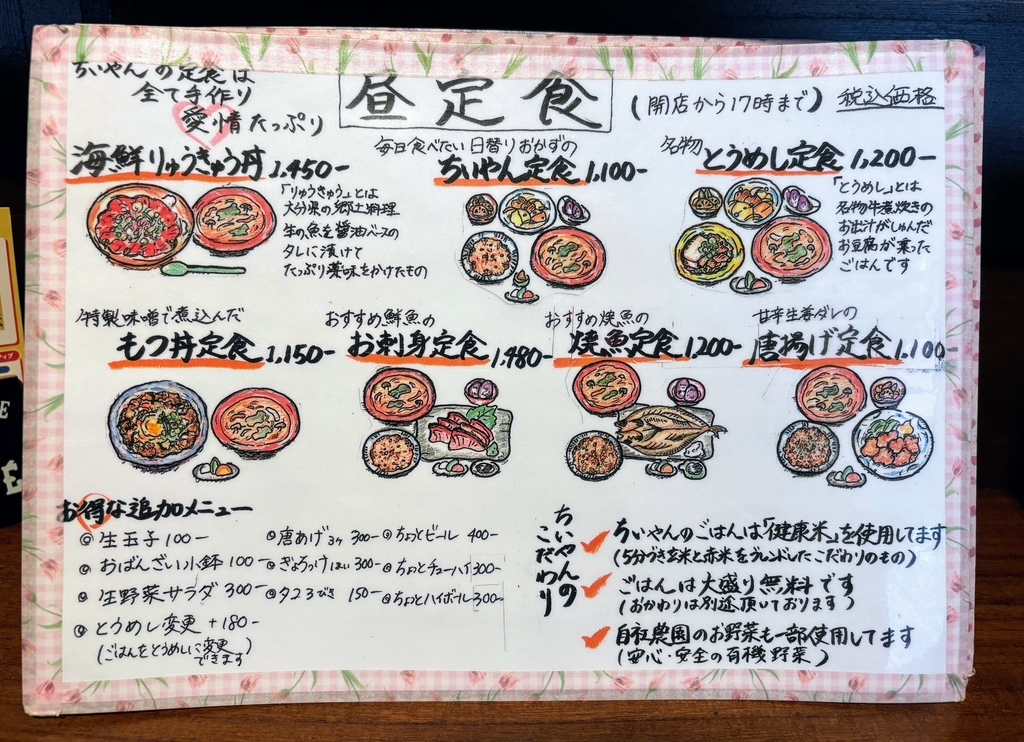 ちぃやんの定食は
全て手作り
愛情たっぷり
昼定食
(開店から17時まで)
税込価格
海鮮りゅうきゅう丼 1,450-
「りゅうきゅう」とは
大分県の郷土料理
生の魚を醤油ベースの
タレに漬けて
たっぷり薬味をかけたもの
毎日食べたい日替りおかずの
ちぃやん定食 1,100-
名物 とうめし定食 1,200-
「とうめし」とは
名物牛煮炊きの
お出汁がしゅんだ
お豆腐が乗った
ごはんです
特製味噌で煮込んだ
もつ丼定食 1,150-
おすすめ鮮魚の
お刺身定食 1,480-
おすすめ焼魚の
焼魚定食 1,200-
甘辛生姜ダレの
唐揚げ定食 1,100-
お得な追加メニュー
生玉子 100-
おばんざい小鉢 100-
生野菜サラダ 300-
とうめし変更 +180-
(ごはんをとうめしに変更
できます)
唐あげ3ヶ 300-
300-
150-
ちょっとビール 400-
ちょっとチューハイ 300-
ちょっとハイボール 300-
ちぃやんの
こだわり
ちぃやんのごはんは「健康米」を使用してます
(5分づき玄米と赤米をブレンドしたこだわりのもの)
ごはんは大盛り無料です
(おかわりは別途頂いております)
自社農園のお野菜も一部使用してます
(安心・安全の有機野菜)